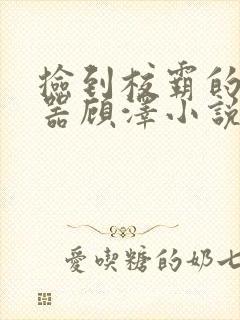 撿到校霸的
器顾澤小說
愛喫糖的奶七